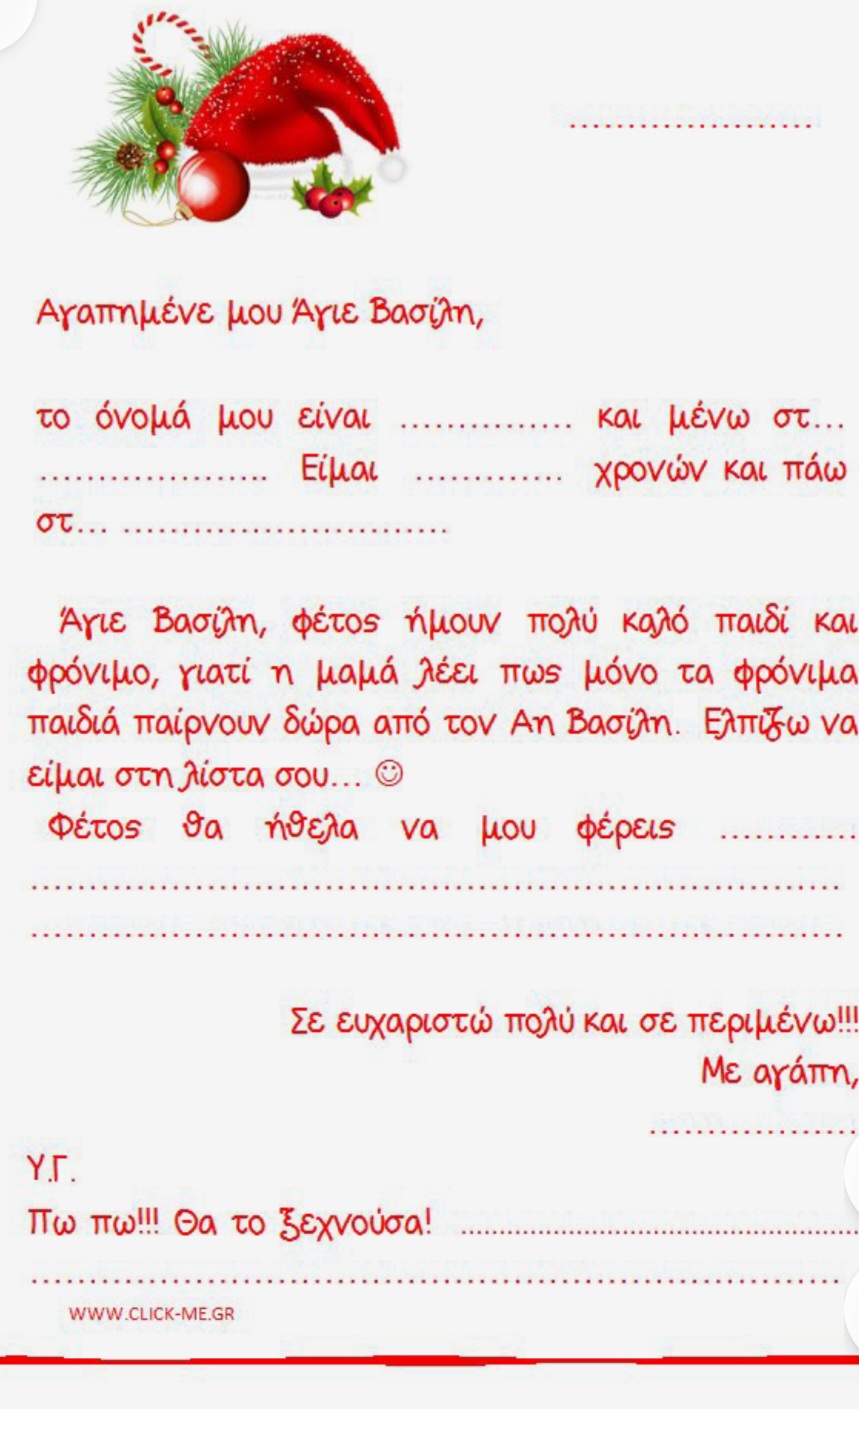 .....................
Αγαπημένε μου Άγιε Βασίλη,
το όνομά μου είναι ............... και μένω στ...
.................... Είμαι ............. χρονών και πάω
στ... ............................
Άγιε Βασίλη, φέτος ήμουν πολύ καλό παιδί και
φρόνιμο, γιατί η μαμά λέει πως μόνο τα φρόνιμα
παιδιά παίρνουν δώρα από τον Αη Βασίλη. Ελπίζω να
είμαι στη λίστα σου... ☺
Φέτος θα ήθελα να μου φέρεις ............
......................................................................
......................................................................
Σε ευχαριστώ πολύ και σε περιμένω!!!
Με αγάπη,
..................
Υ.Γ.
Πω πω!!! Θα το ξεχνούσα! ..................................................
......................................................................
WWW.CLICK-ME.GR